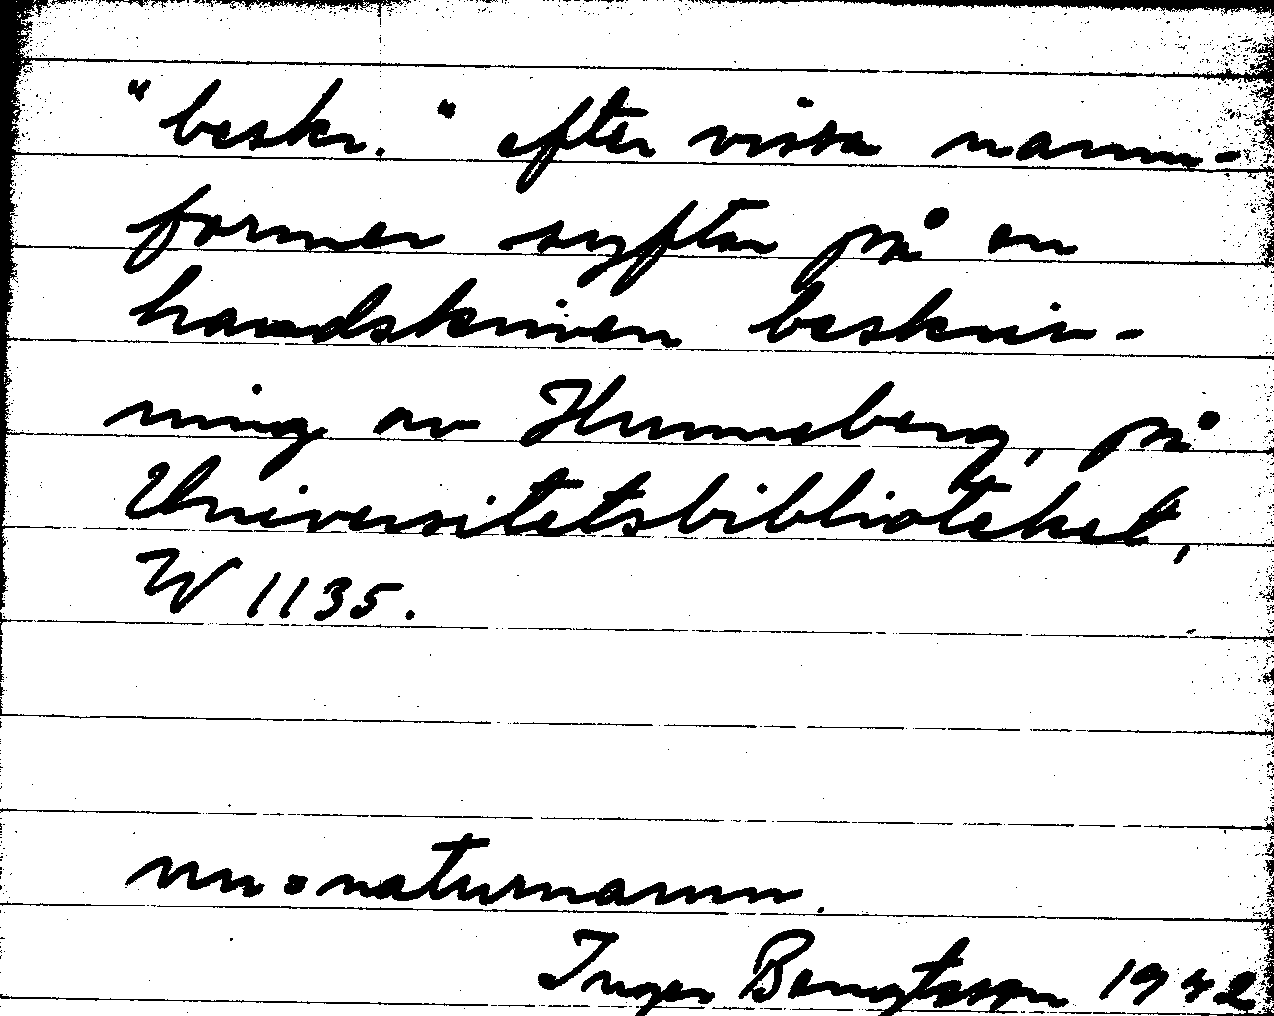 "beskr." efter vissa namn-
former syftar på en
handskriven beskriv-
ning av Hunneberg, på
Universitetsbiblioteket,
W 1135.
nn = naturnamn.
Inger Bengtsson 1942